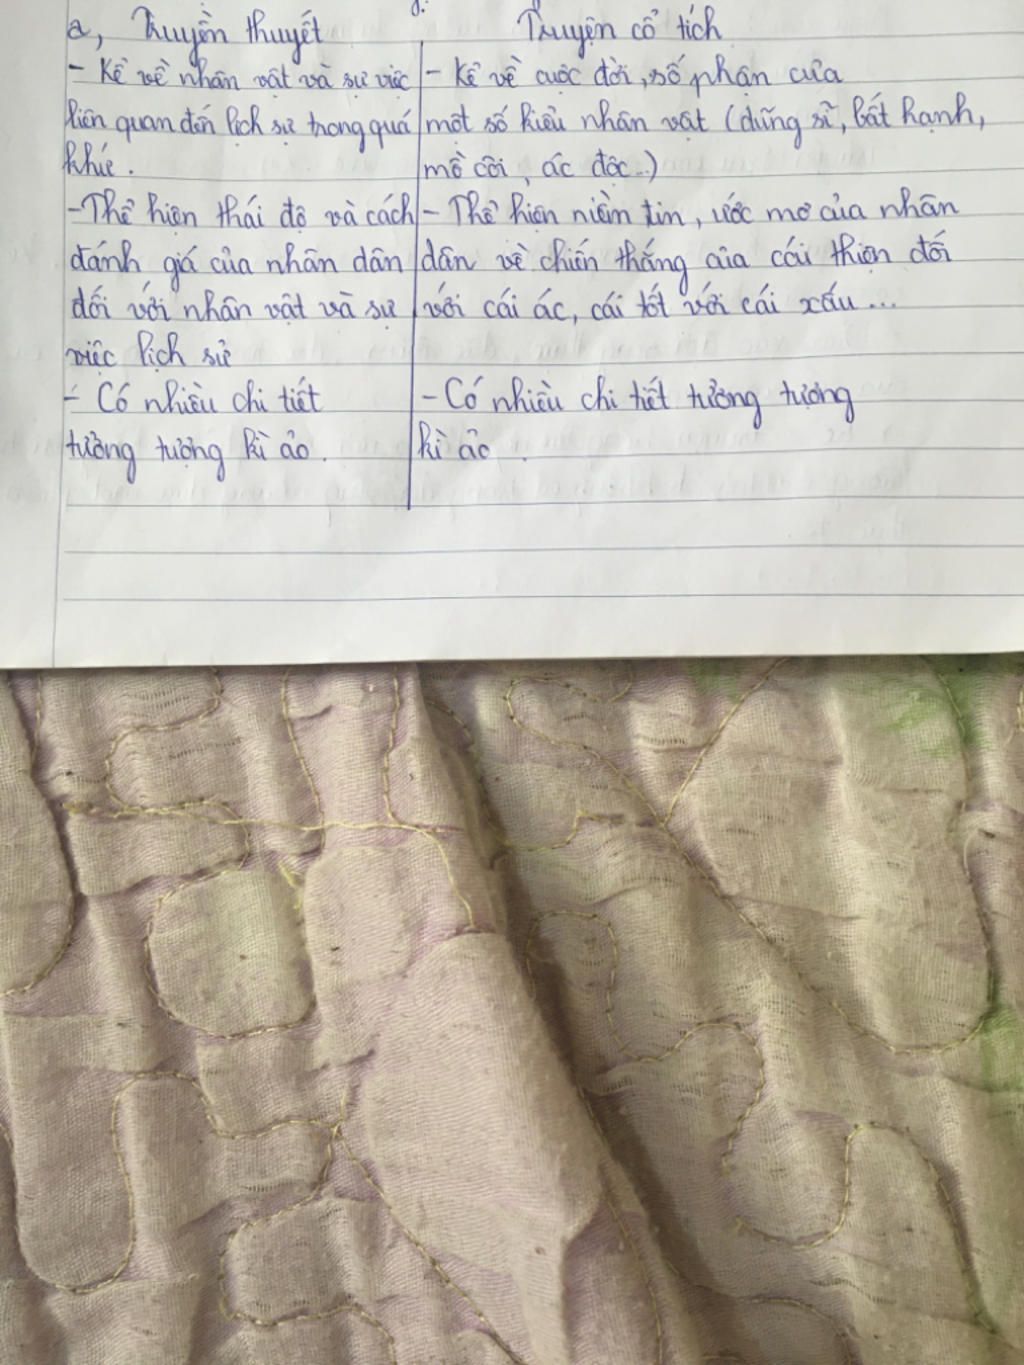 a, Truyền thuyết
Truyện cổ tích
- Kể về nhân vật và sự việc
liên quan đến lịch sử trong quá
khứ.
- Thể hiện thái độ và cách
đánh giá của nhân dân
đối với nhân vật và sự
việc lịch sử
- Có nhiều chi tiết
tưởng tượng kì ảo.
- Kể về cuộc đời, số phận của
một số kiểu nhân vật (dũng sĩ, bất hạnh,
mồ côi, ác độc..)
- Thể hiện niềm tin, ước mơ của nhân
dân về chiến thắng của cái thiện đối
với cái ác, cái tốt với cái xấu...
- Có nhiều chi tiết tưởng tượng
kì ảo.